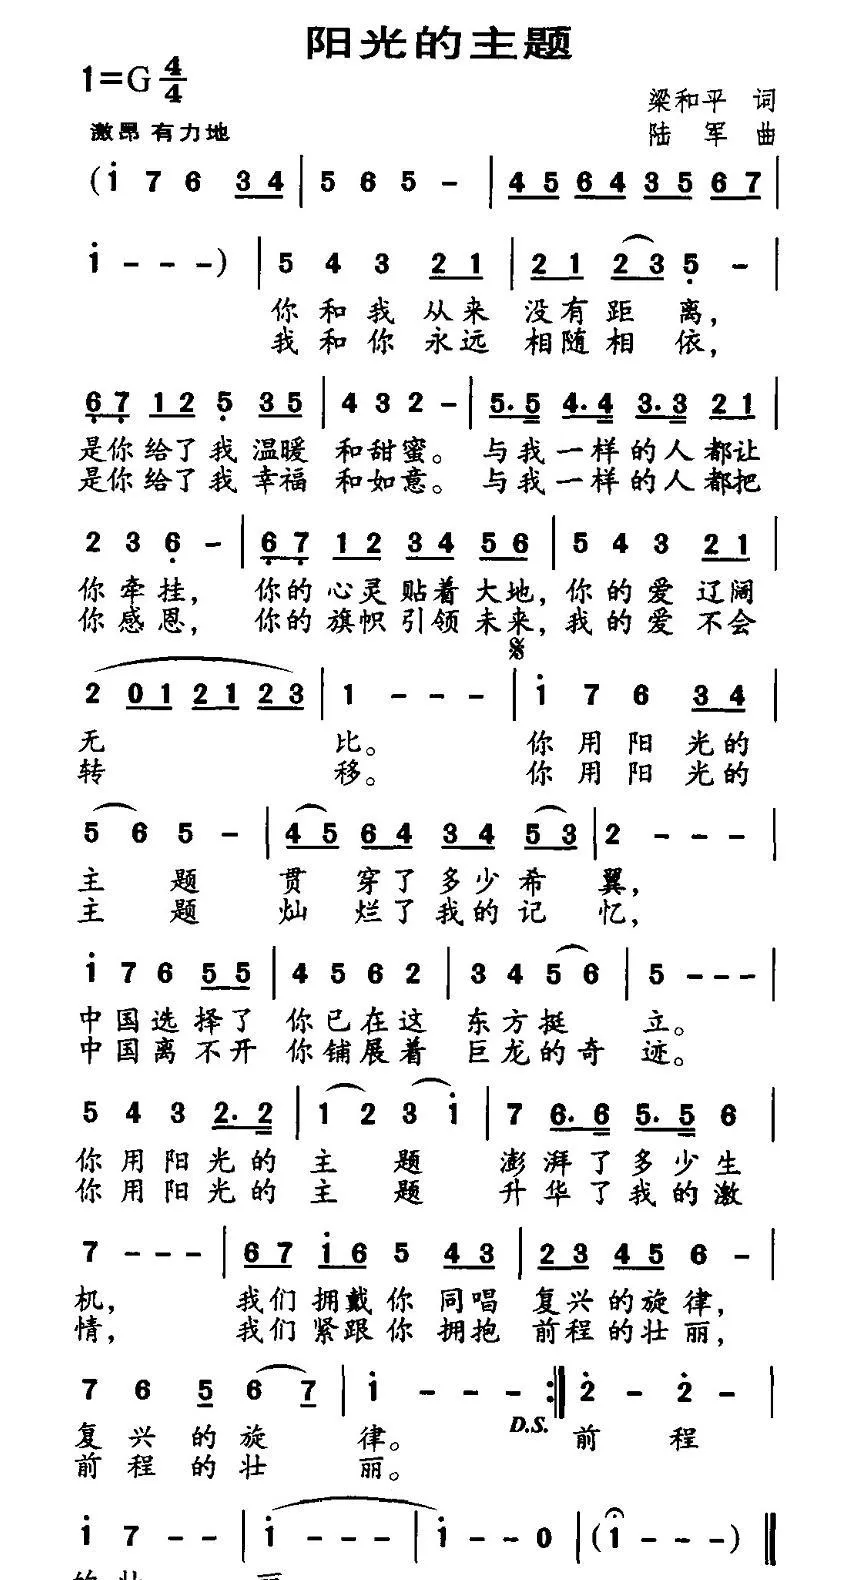 阳光的主题
1=G 4/4
梁和平 词
激昂 有力地
陆 军 曲
(i 7 6 3 4 | 5 6 5 - | 4 5 6 4 3 5 6 7 |
i - - -) | 5 4 3 2 1 | 2 1 2 3 5 - |
你 和 我 从 来 没 有 距 离,
我 和 你 永 远 相 随 相 依,
6 7 1 2 5 3 5 | 4 3 2 - | 5. 5 4. 4 3. 3 2 1 |
是你 给了 我 温暖 和甜蜜。 与我 一样 的人 都让
是你 给了 我 幸福 和如意。 与我 一样 的人 都把
2 3 6 - | 6 7 1 2 3 4 5 6 | 5 4 3 2 1 |
你 牵 挂, 你的 心灵 贴着 大地, 你 的 爱 辽阔
你 感 恩, 你的 旗帜 引领 未来, 我 的 爱 不会
2 0 1 2 1 2 3 | 1 - - - | i 7 6 3 4 |
无 比。 你 用 阳 光的
转 移。 你 用 阳 光的
5 6 5 - | 4 5 6 4 3 4 5 3 | 2 - - - |
主 题 贯 穿了 多少 希 翼,
主 题 灿 烂了 我的 记 忆,
i 7 6 5 5 | 4 5 6 2 | 3 4 5 6 | 5 - - - |
中 国 选 择 了 你 已 在 这 东 方 挺 立。
中 国 离 不 开 你 铺 展 着 巨 龙 的 奇 迹。
5 4 3 2. 2 | 1 2 3 i | 7 6. 6 5. 5 6 |
你 用 阳 光 的 主 题 澎 湃 了 多 少 生
你 用 阳 光 的 主 题 升 华 了 我 的 激
7 - - - | 6 7 i 6 5 4 3 | 2 3 4 5 6 - |
机, 我们 拥戴 你 同唱 复兴 的旋 律,
情, 我们 紧跟 你 拥抱 前程 的壮 丽,
7 6 5 6 7 | i - - - :| 2 - 2 - |
D.S.
复 兴 的 旋 律。 前 程
前 程 的 壮 丽。
i 7 - - | i - - - | i - - 0 | (i - - -) ||